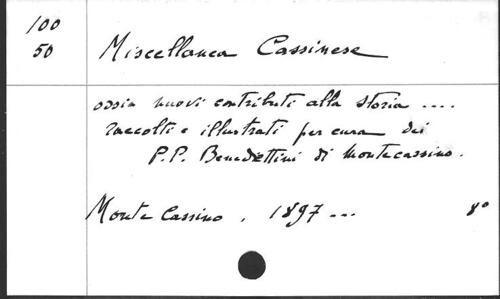 100
50
Miscellanea Cassinese
ossia nuovi contributi alla storia ....
raccolti e illustrati per cura dei
P.P. Benedettini di Montecassino.
Monte Cassino, 1897 ... 8°